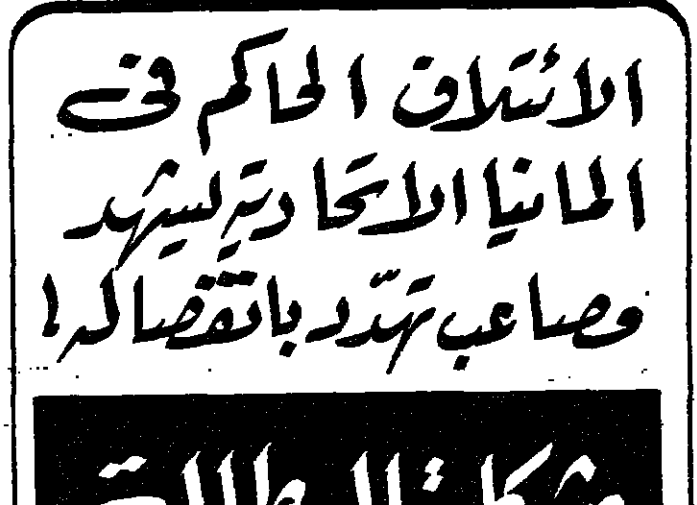 الائتلاف الحاكم فى
المانيا الاتحادية يشهد
مصاعب تهدد بانفصاله!
مشكلة البطالة